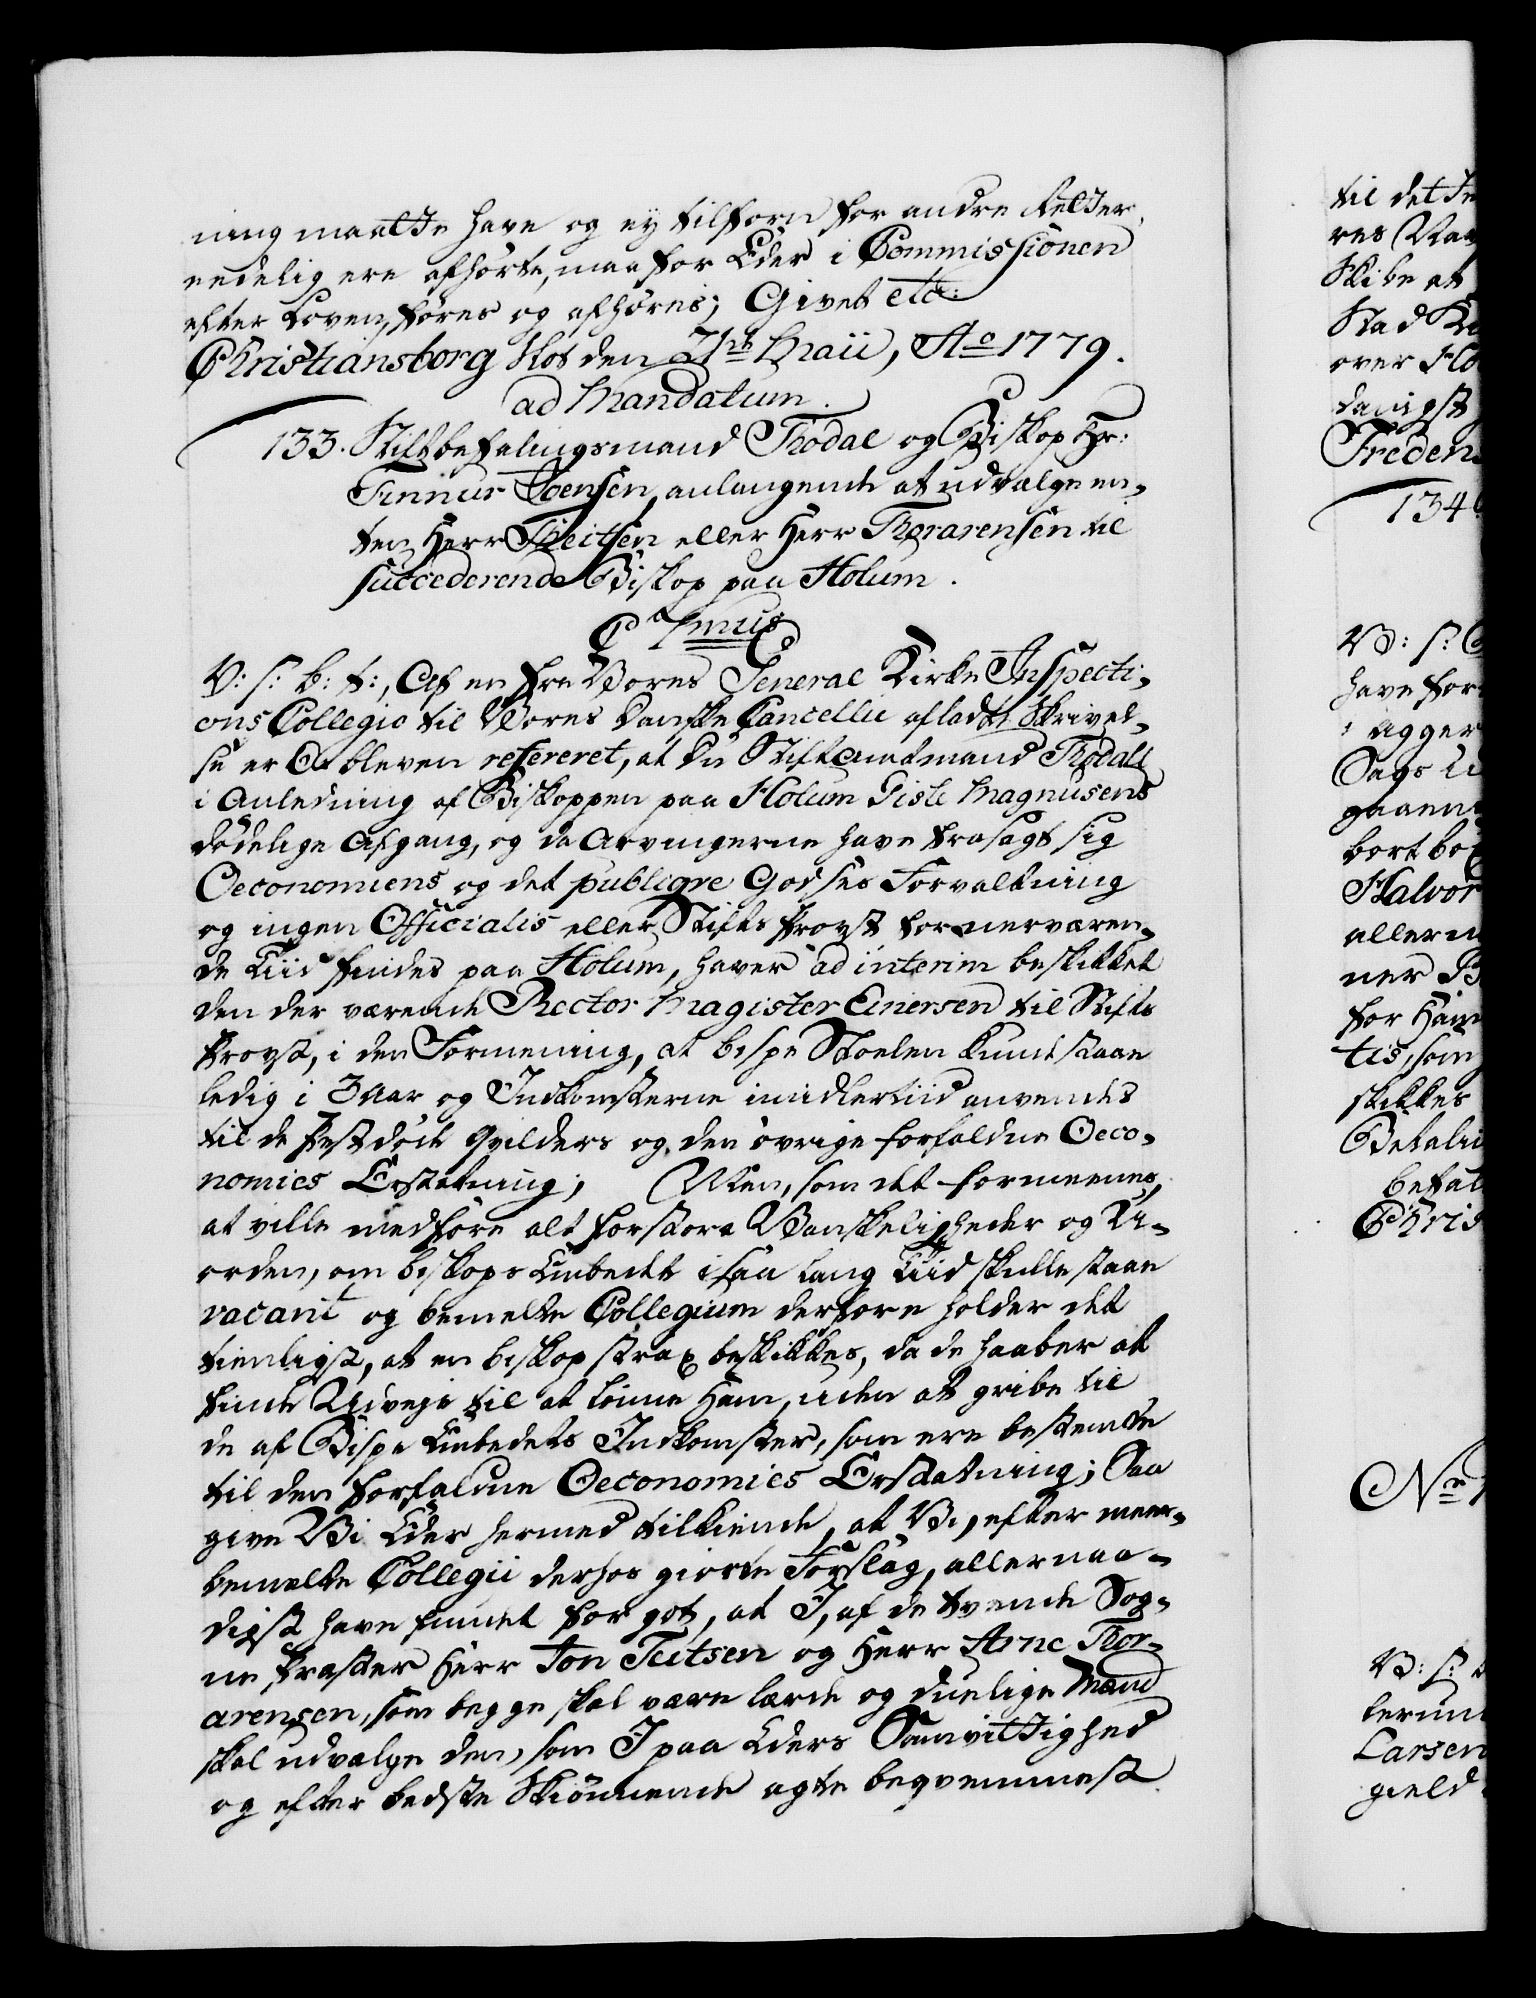 ning maatte have og ey tilforn for andre Retter
endelig ere afhørte, maa for Eder i Commissionen
efter Loven, føres og afhøres; Givet etc:
Christiansborg Slot den 21de Maii, Ao 1779.
ad Mandatum.
133. Stiftbefalingsmand Thodal og Biskop Hr:
Finnur Joensen, anlangende at udvælge en-
ten Herr Theitsen eller Herr Thorarensen til
succederende Biskop paa Holum.
C 7mus
V: s: b: t:, Af en fra Vores General Kirke Inspecti-
ons Collegio til Vores Danske Cancellie afladt Skrivel-
se er Os bleven refereret, at Du Stiftamtmand Thodal
i Anledning af Biskoppen paa Holum Gisle Magnusens
dødelige Afgang, og da Arvingerne have frasagt sig
Oeconomiens og det publiqve Godses Forvaltning
og ingen Officialis eller Stifts Provst for nerværen-
de Tiid findes paa Holum, haver ad interim beskikket
den der værende Rector Magister Einersen til Stifts
Provst, i den Formening, at bispe Stoelen kunde staae
ledig i 3 Aar og Indkomsterne imidlertiid anvendes
til de Pestdøde Qvilders og den øvrige forfaldne Oeco-
nomies Erstatning; Men, som det formeenes,
at ville medføre alt for store Vanskeligheder og U-
orden, om biskops Embedet i saa lang Tiid skulle staae
vacant og bemelte Collegium derfore holder det
tienligst, at en biskop strax beskikkes, da de haaber at
finde Udveje til at lønne Ham, uden at gribe til
de af Bispe Embedets Indkomster, som ere bestemte
til den forfaldne Oeconomies Erstatning; Saa
give Vi Eder hermed tilkiende, at Vi, efter meer-
bemelte Collegii derhos giorte Forslag, allernaa-
digst have fundet for got, at I, af de tvende Sog-
ne Præster Herr Jon Teitsen og Herr Arne Thor-
arensen, som begge skal være lærde og duelige Mænd
skal udvælge den, som I paa Eders Samvittighed
og efter bedste Skiønnende agte beqvemmest
til dette
Skibe at
Stad
over
danigst
134
V: s:
have for
Sags
bort
Halvor
allern
ner
for Ham
tis, som
skikkes
Betalin
befal
Chris
No
V: s:
lerun
Larsen
gield